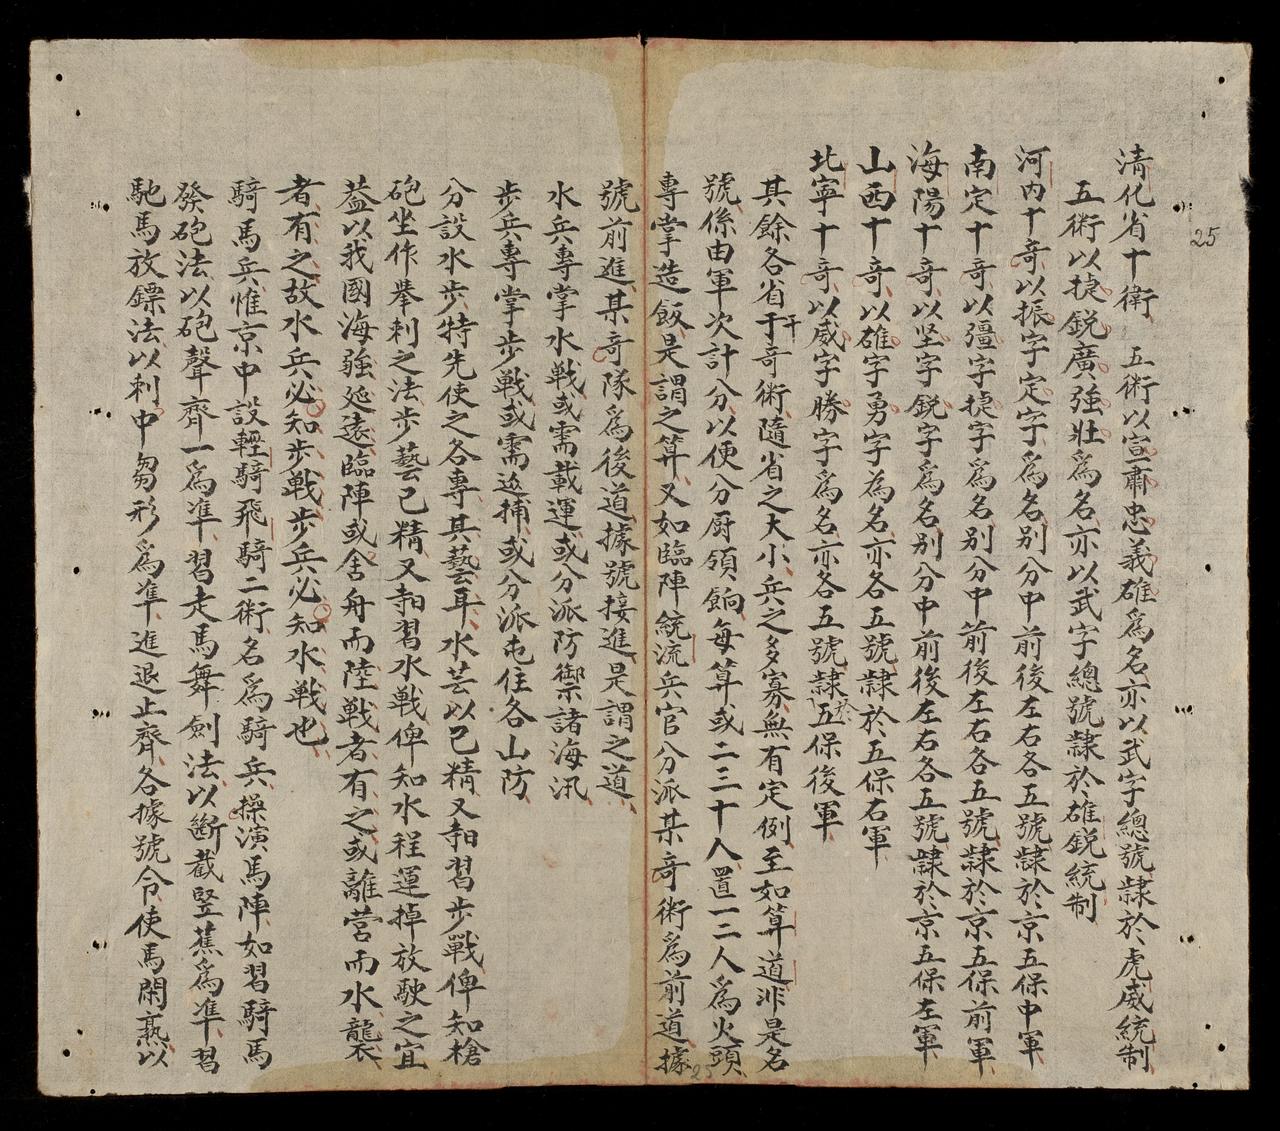 25
清化省十衛　五術以宣肅忠義雄爲名亦以武字總號隸於虎威統制
五術以捷銳廣強壯爲名亦以武字總號隸於雄銳統制
河内十奇以振字定字爲名别分中前後左右各五號隸於京五保中軍
南定十奇以彊字捷字爲名别分中前後左右各五號隸於京五保前軍
海陽十奇以坚字銳字爲名别分中前後左右各五號隸於京五保左軍
山西十奇以雄字勇字為名亦各五號隸於五保右軍
北寧十奇以威字勝字爲名亦各五號隸於五保後軍
其餘各省于奇術隨省之大小兵之多寡無有定例至如算道非是名
號係由軍次計分以便分厨領餉每算或二三十人置一二人爲火頭
專掌造飯是謂之算又如臨陣統流兵官分派某奇術爲前道據
號前進某奇隊爲後道據號接進是謂之道
水兵專掌水戦或需載運或分派防禦諸海汛
步兵專掌步戦或需返捕或分派屯住各山防
分設水步特先使之各專其藝耳水芸以已精又習步戰俾知槍
砲坐作擧刺之法步藝已精又習水戦俾知水程運掉放駛之宜
葢以我國海強延遠臨陣或舍舟而陸戦者有之或離营而水襲
者有之故水兵必知步戦步兵必知水戦也
騎馬兵惟京中設輕騎飛騎二術名爲騎兵操演馬陣如習騎馬
發砲法以砲聲齊一爲凖習走馬舞劍法以斷截竪蕉爲凖習
馳馬放鏢法以刺中芻形爲凖進退止齊各據號令使馬閑熟以
25